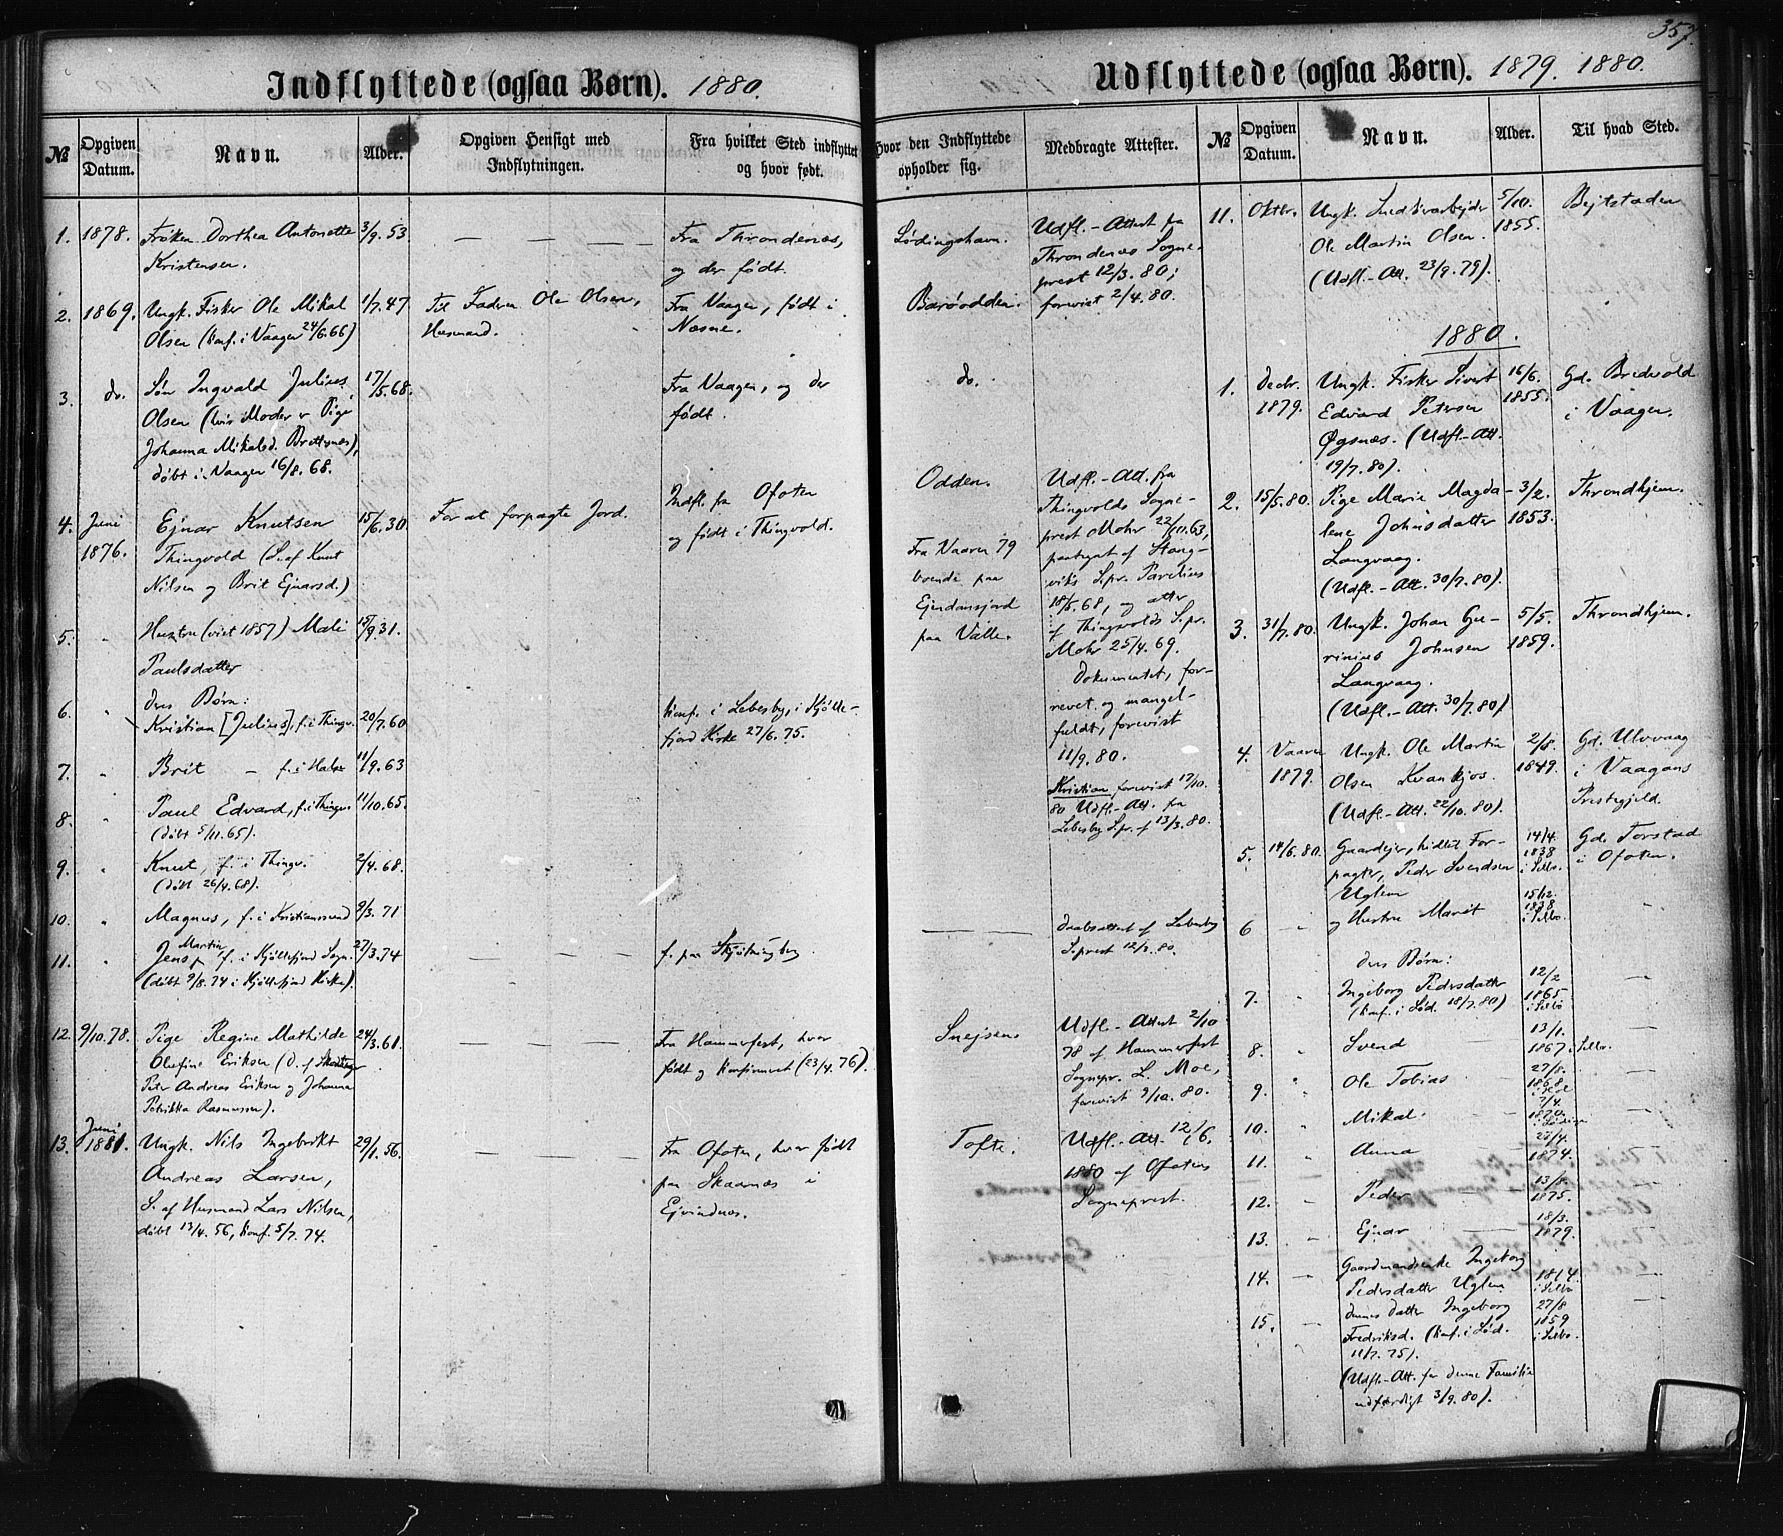 357.
Indflyttede (ogsaa Børn). 1880.
№
Opgiven Datum.
Navn.
Alder.
Opgiven Hensigt med Indflytningen.
Fra hvilket Sted indflyttet og hvor født.
Hvor den Indflyttede opholder sig.
Medbragte Attester.
1. 1878. Frøken Dorthea Antonette 3/9. 53
Kristensen.
Fra Throndenæs,
og der født.
Lødingshavn.
Udfl.-Attest fra
Throndenæs Sogne-
prest 12/3. 80;
forevist 2/4. 80.
2. 1869. Ungk. Fisker Ole Mikal 1/7. 47.
Olsen (konf. i Vaagen 24/6. 66)
Til Faderen Ole Olsen,
Husmand.
Fra Vaagen, født i
Næsne.
Barøodden.
3. do. Søn Ingvald Julius 17/5. 68.
Olsen (hvis Moder v. Pige
Johanna Mikalsd. Brettynæs),
døbt i Vaagen 16/8. 68.
Fra Vaagen, og der
født.
do.
4. Juni 1876. Ejnar Knutsen 15/6. 30.
Thingvold (S. af Knut
Nilsen og Brit Ejnarsd.)
For at forpagte Jord.
Indfl. fra Ofoten
og født i Thingvold.
Odden.
Fra Vaaren 79
boende paa
Ejendomsjord
paa Valle.
Udfl.-Att. fra
Thingvolds Sogne-
prest Mohr 22/10. 63,
paategnet af Stang-
viks S.pr. Parelius
18/5. 68, og atter
af Thingvolds S.pr.
Mohr 25/4. 69.
Dokumentet, for-
revet og mangel-
fuldt, forevist
11/9. 80.
5. " Hustru (viet 1857) Mali 15/9. 31.
Paulsdatter
6. " Deres Børn:
Kristian [Julius], f. i Thingv. 20/7. 60
Konf. i Lebesby, i Kjølle-
fjord Kirke 27/6. 75.
7. " Brit – f. i Halse 11/9. 63
Kristian, forevist 17/10.
80 Udfl.-Att. fra
Lebesby S.pr. af 13/3. 80.
8. " Paul Edvard, f. i Thingv. 11/10. 65.
(døbt 5/11. 65).
9. " Knut, f. i Thingv. 2/4. 68.
(døbt 26/4. 68).
10. " Magnus, f. i Kristianssund 9/3. 71
11. " Jens Martin, f. i Kjøllefjord Sogn. 27/3. 74
(døbt 9/8. 74 i Kjøllefjord Kirke).
f. paa Skjøtningberg
Daabsattest af Lebesby
S.prest 12/3. 80.
12. 9/10. 78. Pige Regine Mathilde 24/3. 61.
Olufine Eriksen (D. af
Peter Andreas Eriksen og Johanna
Petrikka Rasmussen).
Fra Hammerfest, hvor
født og konfirmeret (23/4. 76).
Snejsen
Udfl.-Attest 2/10
78 af Hammerfest
Sognepr. L. Moe,
forevist 9/10. 80.
13. Juni 1880. Ungk. Nils Ingebrikt 29/1. 56.
Andreas Larsen,
S. af Husmand Lars Nilsen,
døbt 13/4. 56, konf. 5/7. 74.
Fra Ofoten, hvor født
paa Skaanæs i
Ejvindnæs.
Tofte.
Udfl.-Att. 12/6.
1880 af Ofotens
Sogneprest.
Udflyttede (ogsaa Børn). 1879. 1880.
№
Opgiven Datum.
Navn.
Alder.
Til hvad Sted.
11. Oktbr. Ungk. Snedkerarbejder 5/10. 1855. Bejtstaden
Ole Martin Olsen.
(Udfl.-Att. 23/9. 79).
1880.
1. Decbr. 1879. Ungk. Fisker Sivert 16/6. 1855. Gd. Bredvold
Edvard Petersen i Vaagen.
Øgsnæs. (Udfl.-Att.
19/7. 80).
2. 15/5. 80. Pige Marie Magda- 3/2. 1853. Throndhjem.
lene Johnsdatter
Langvaag.
(Udfl.-Att. 30/7. 80).
3. 31/7. 80. Ungk. Johan Gu- 5/5. 1859. Throndhjem.
rinius Johnsen
Langvaag.
(Udfl.-Att. 30/7. 80)
4. Vaaren 1879. Ungk. Ole Martin 2/8. 1849. Gd. Ulvvaag
Olsen Kvankjos. i Vaagans
(Udfl.-Att. 22/10. 80). Prestegjeld.
5. 14/6. 80. Gaardejer, hidtil For- 14/4. 1838 i Selbo. Gd. Forstad
pagter, Peder Svendsen i Ofoten.
Uglem
6 " og Hustru Marit 15/12. 1838 i Selbo. "
Deres Børn:
7. " Ingeborg Pedersdatter 12/2 1865 i Selbo
(konf. i Lød. 18/7. 80)
8. " Svend 13/1. 1867 i Selbo.
9. " Ole Tobias 27/8. 1868 i Selbo
10. " Mikal. 7/4. 1870. i Lødingen
11. " Anna 25/4. 1874.
12. " Peder 13/8. 1875.
13. " Ejnar 18/3. 1879.
14. – Gaardmandsenke Ingeborg
Pedersdatter Uglem 1814. i Selbo
15. – Dennes Datter Ingeborg 27/8 1859 i Selbo.
Fredriksd. (konf. i Lød.
11/7. 75).
(Udfl.-Att. for denne Familie
udfærdiget 3/9. 80).